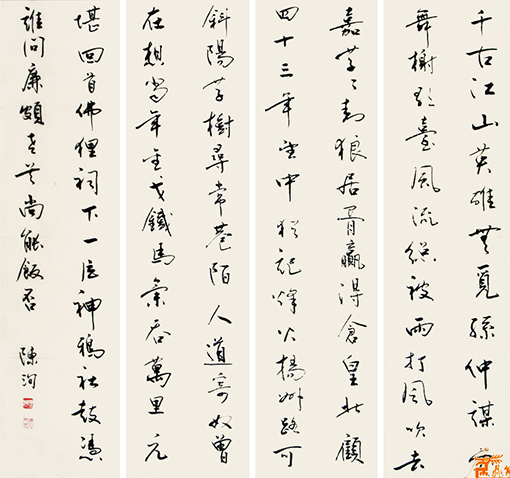 千古江山英雄無覓孫仲謀處
舞榭歌臺風流總被雨打風吹去
嘉草々封狼居胥贏得倉皇北顧
四十三年望中猶記烽火揚州路可
斜陽草樹尋常巷陌人道寄奴曾
在想當年金戈鐵馬氣吞萬里元
堪回首佛狸祠下一片神鴉社鼓憑
誰問廉頗老矣尚能飯否
陳洵